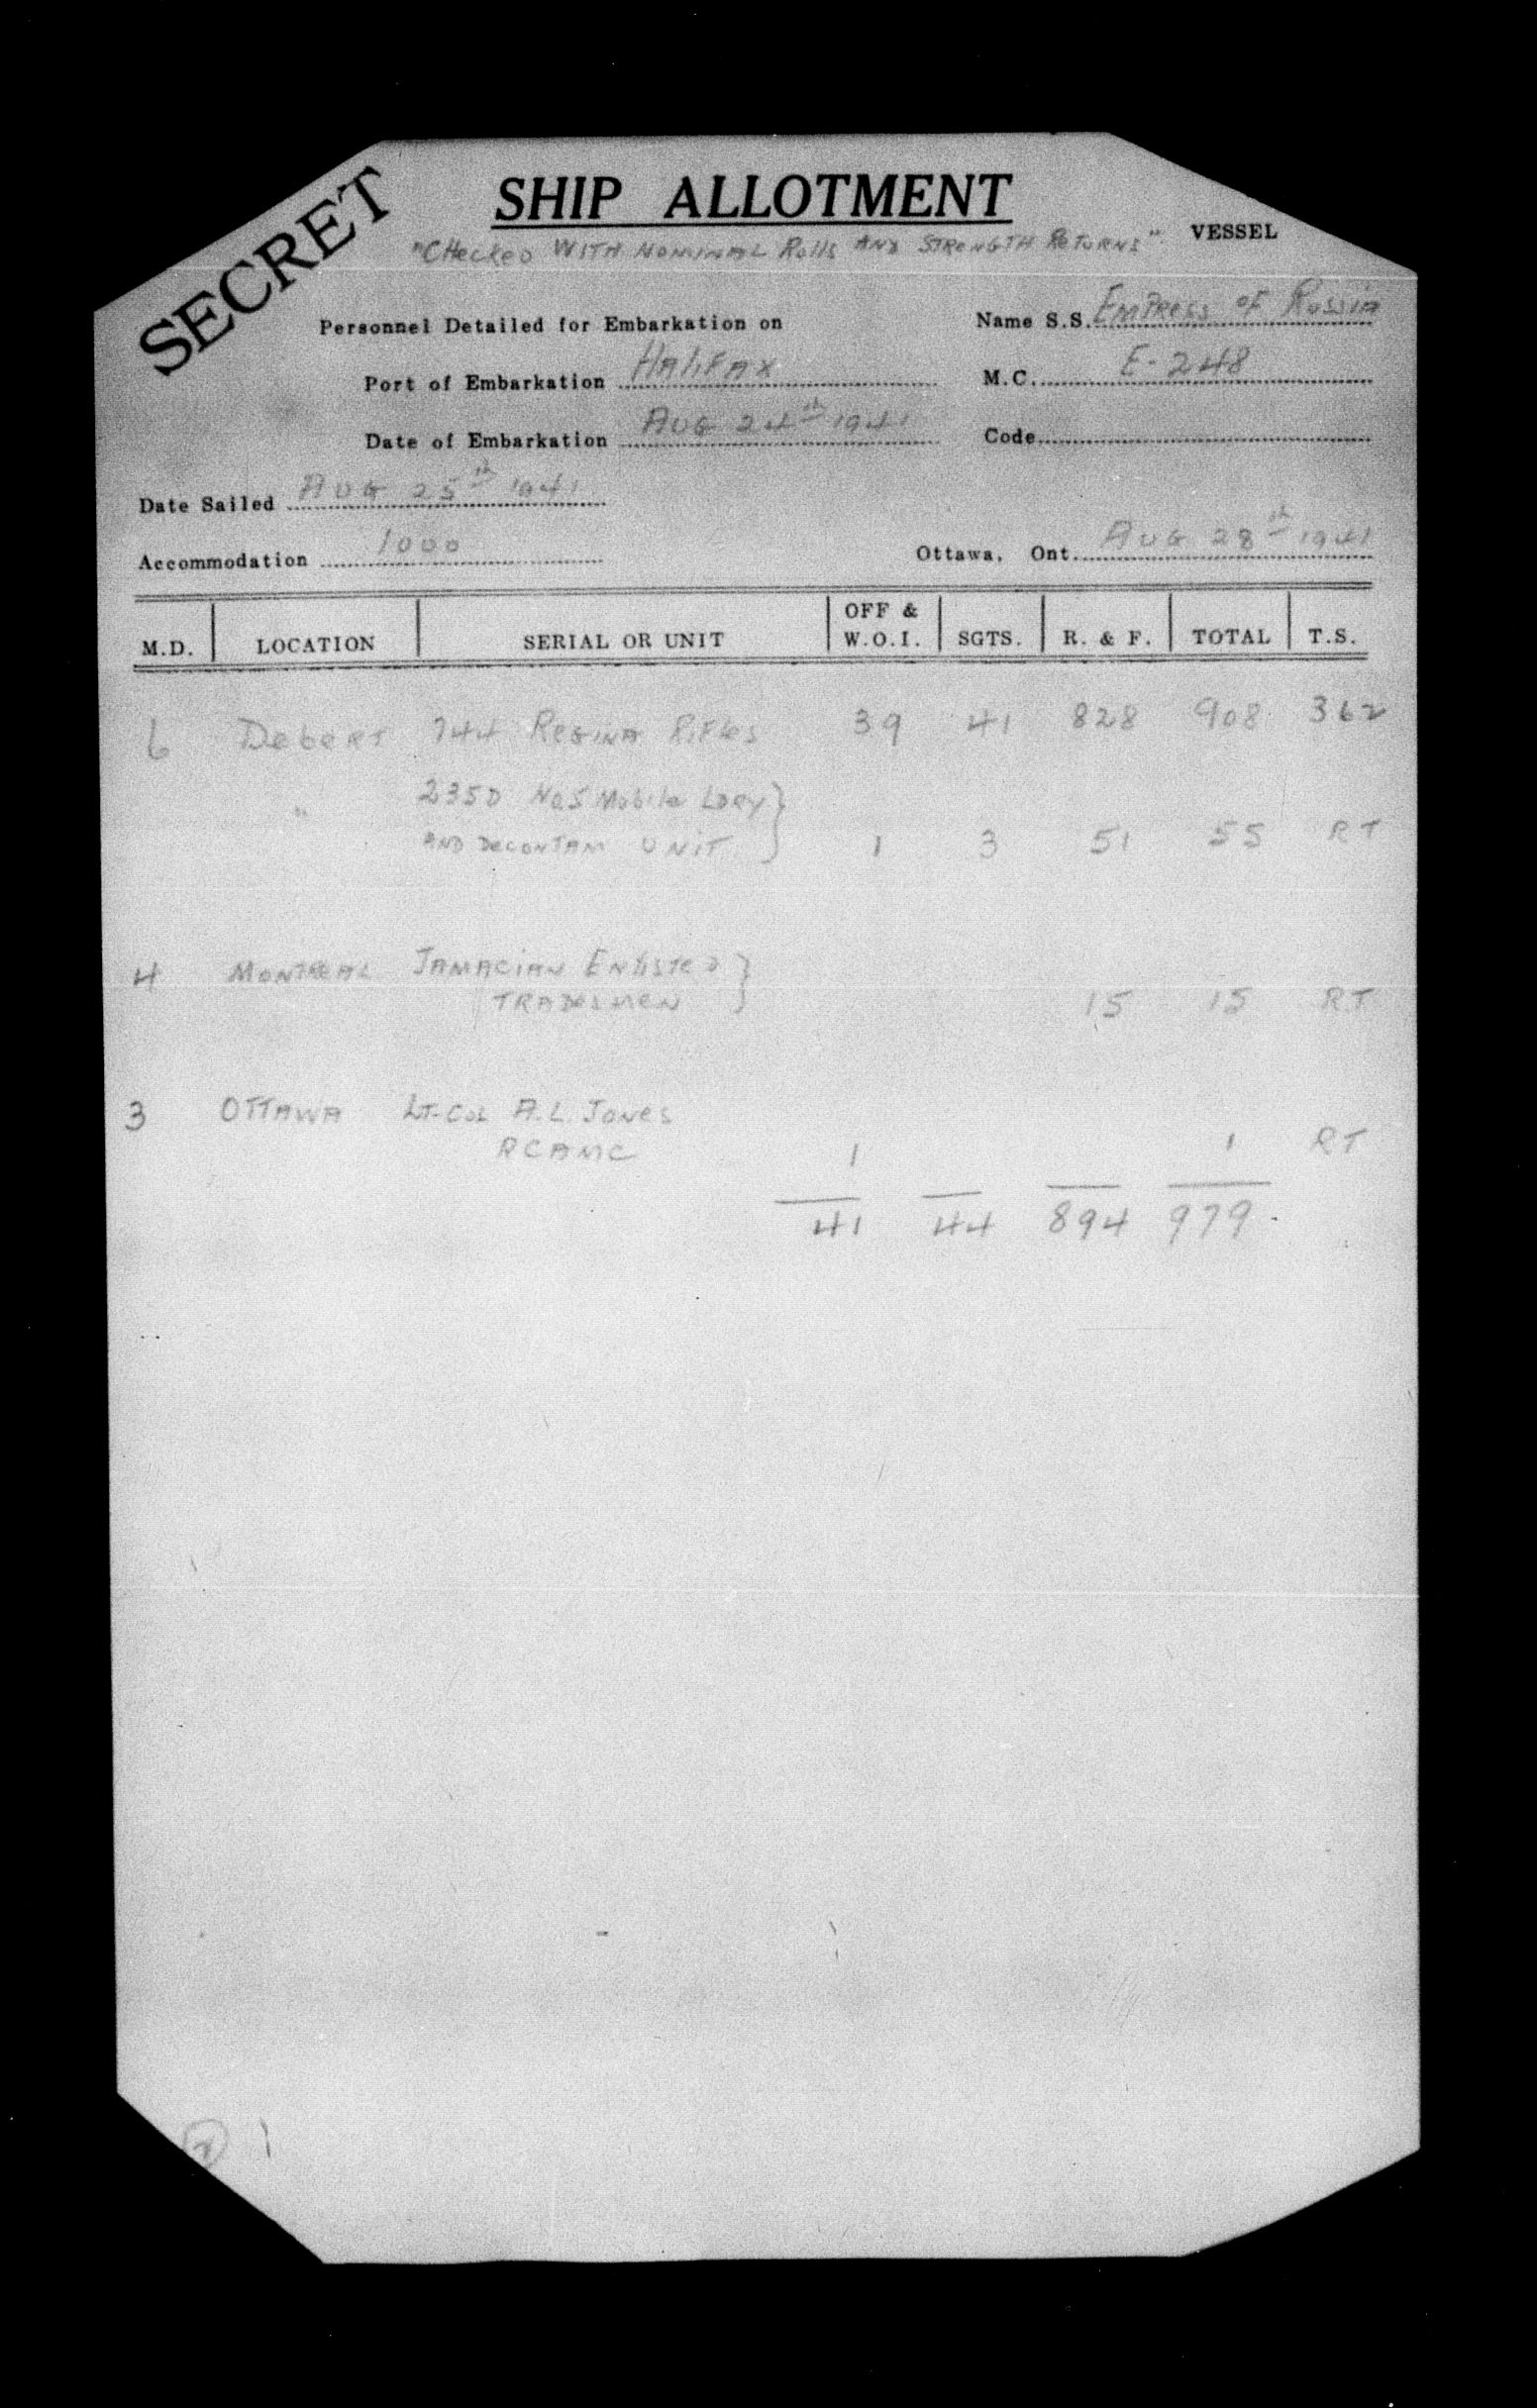 SECRET
SHIP ALLOTMENT
"CHecked WITH NOMINAL Rolls AND STRENGTH RETURNS" VESSEL
Personnel Detailed for Embarkation on Name S.S. EMPRESS OF RUSSIA
Port of Embarkation HALIFAX M.C. E-248
Date of Embarkation AUG 24th 1941 Code
Date Sailed AUG 25th 1941
Accommodation 1000 Ottawa, Ont. AUG 28th 1941
M.D. LOCATION SERIAL OR UNIT OFF & W.O.I. SGTS. R. & F. TOTAL T.S.
6 Debert 744 REGINA RIFLES 39 41 828 908 362
" 235D No5 Mobile LDRY }
AND DECONTAM UNIT } 1 3 51 55 RT
4 MONTREAL JAMACIAN ENLISTED }
TRADESMEN } 15 15 RT
3 OTTAWA LT-COL A.L. JONES
RCAMC 1 1 RT
41 44 894 979.